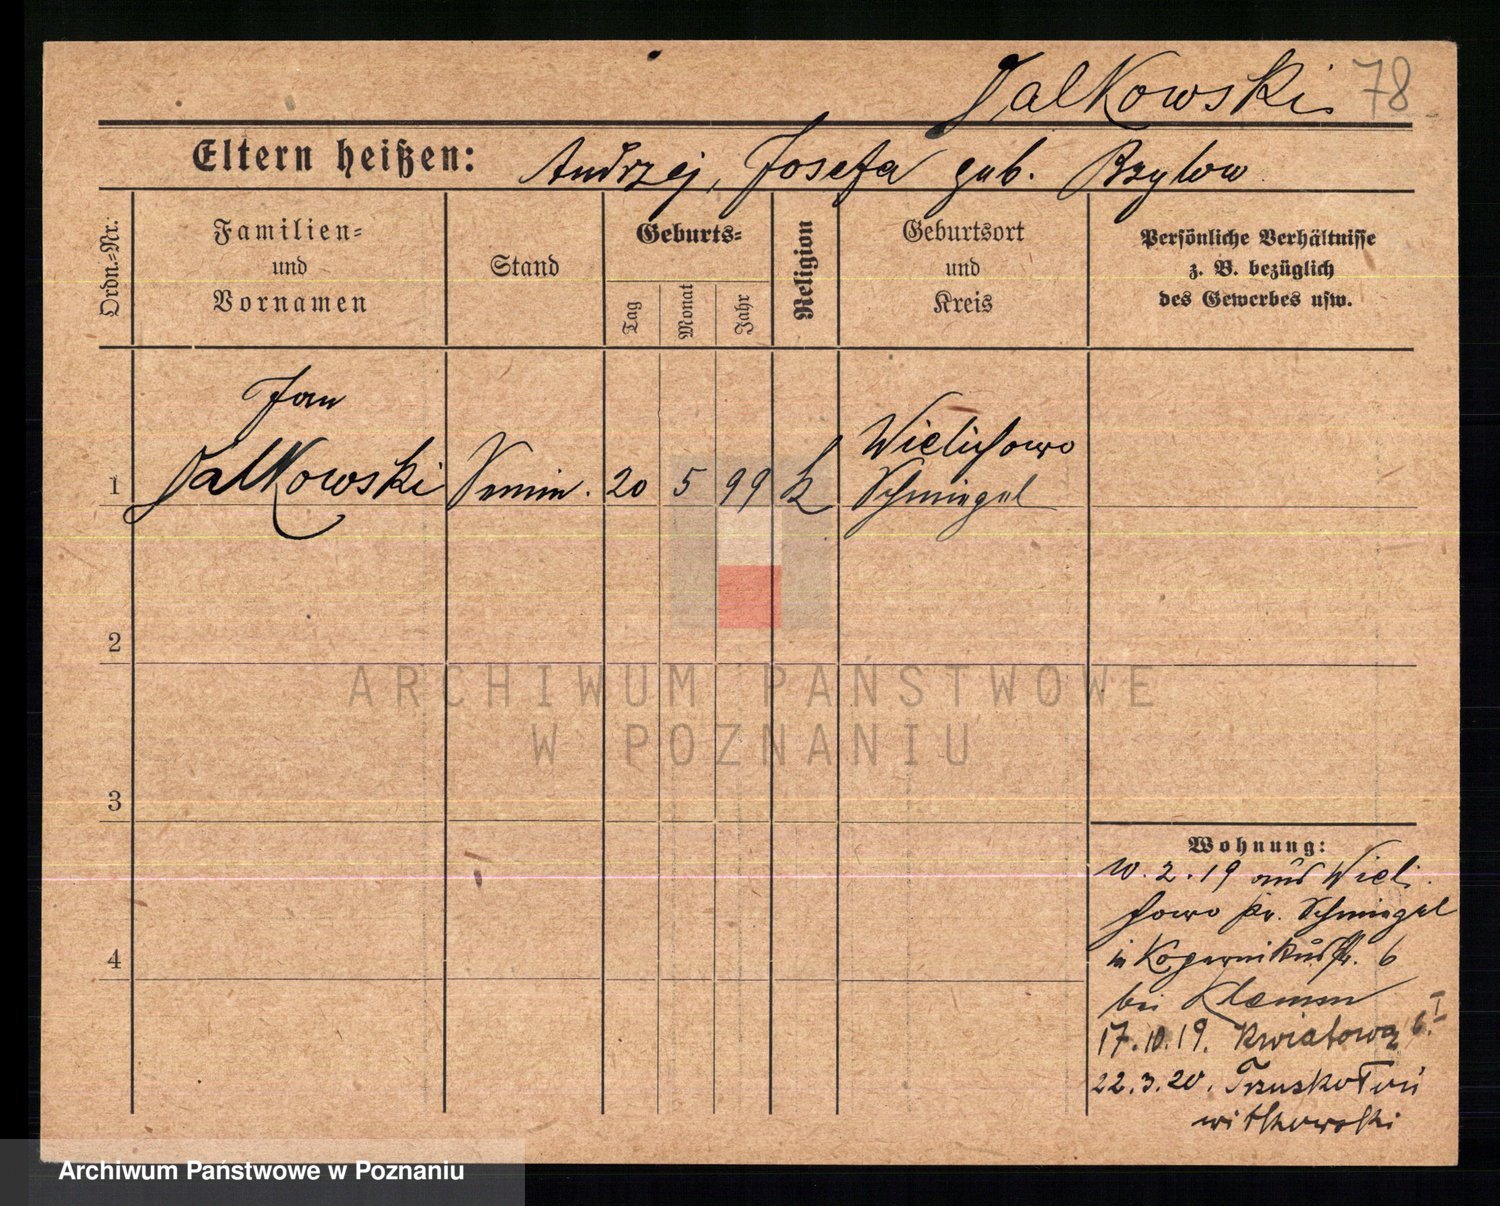 Jalkowski 78
Eltern heißen: Andrzej, Josefa geb. Brzylow
Ordn.-Nr.
Familien- und Vornamen
Stand
Geburts-
Tag
Monat
Jahr
Religion
Geburtsort und Kreis
Persönliche Verhältnisse
z. B. bezüglich
des Gewerbes usw.
Jan
Wielichowo
1 Jalkowski 20 5 99 k Schmiegel
2
ARCHIWUM PAŃSTWOWE
W POZNANIU
3
Wohnung:
10.2.19 aus Wieli-
chowo Kr. Schmiegel
4
in Kopernikusstr. 6
bei Klemm
17.10.19. Kwiatowa 6. I
22.3.20. Trzuskotoń
witkowski
Archiwum Państwowe w Poznaniu